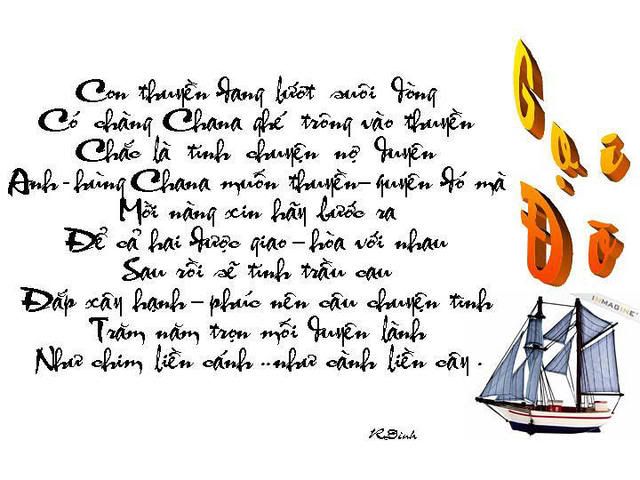 Con thuyền đang lướt suôi dòng
Có chàng Chana ghé trông vào thuyền
Chắc là tình chuyện nợ duyên
Anh-hùng Chana muốn thuyền-quyên đó mà
Mời nàng xin hãy bước ra
Để cả hai được giao-hòa với nhau
Sau rồi sẽ tính trầu cau
Đắp xây hạnh-phúc nên câu chuyện tình
Trăm năm trọn mối duyên lành
Như chim liền cánh ..như cành liền cây .
KDinh
Gại
Đò
INMAGINE